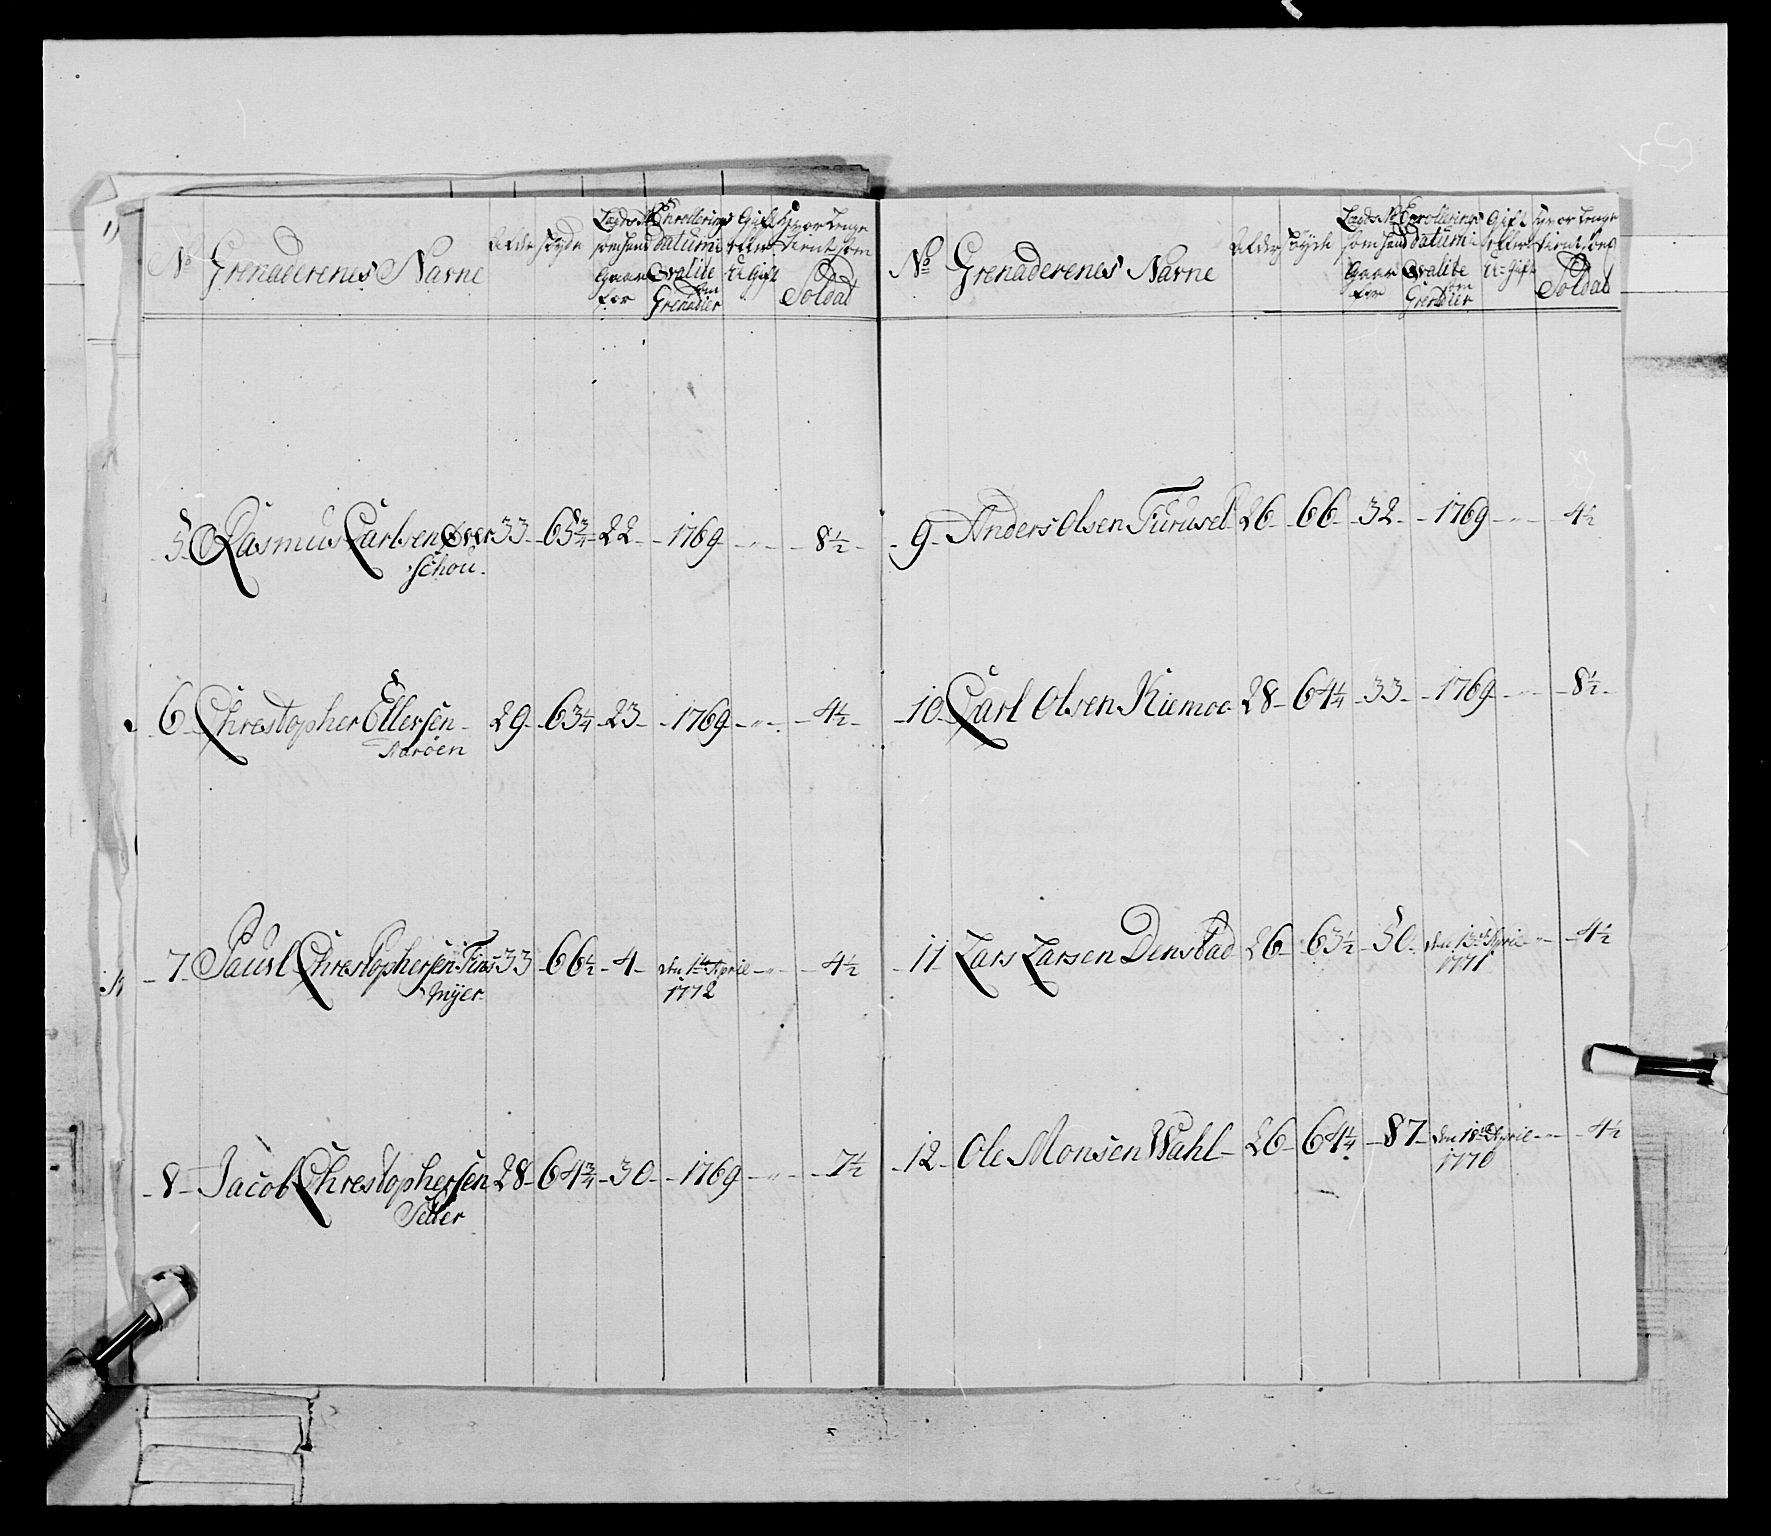 No Grenaderenes Navne Alder Høyde Lægds No som hand Gaar for Enrollerings datum i Qvalite om Grenadier Gift eller U-Gift Hvor Lenge tient som Soldat
5 Rasmus Carlsen Over 33 65 3/4 22 1769 " 8 1/2
schou
6 Chrestopher Ellersen 29 63 1/4 23 1769 " 4 1/2
Narøen
7 Pauel Chrestophersen Fins 33 66 1/2 4 den 1te Aprili " 4 1/2
myer 1772
8 Jacob Chrestophersen 28 64 3/4 30 1769 " 7 1/2
Sæter
No Grenaderenes Navne Alder Høyde Lægds No som hand Gaar for Enrollerings datum i Qvalite om Grenadier Gift eller U-Gift Hvor Lenge tient som Soldat
9 Anders Olsen Furuset 26 66 32 1769 " 4 1/2
10 Carl Olsen Kiemoe 28 64 1/4 33 1769 " 8 1/2
11 Lars Larsen Denstad 26 63 1/2 50 den 13de Aprili " 4 1/2
1771
12 Ole Monsen Wahl 26 64 1/4 87 den 18de Aprili " 4 1/2
1770